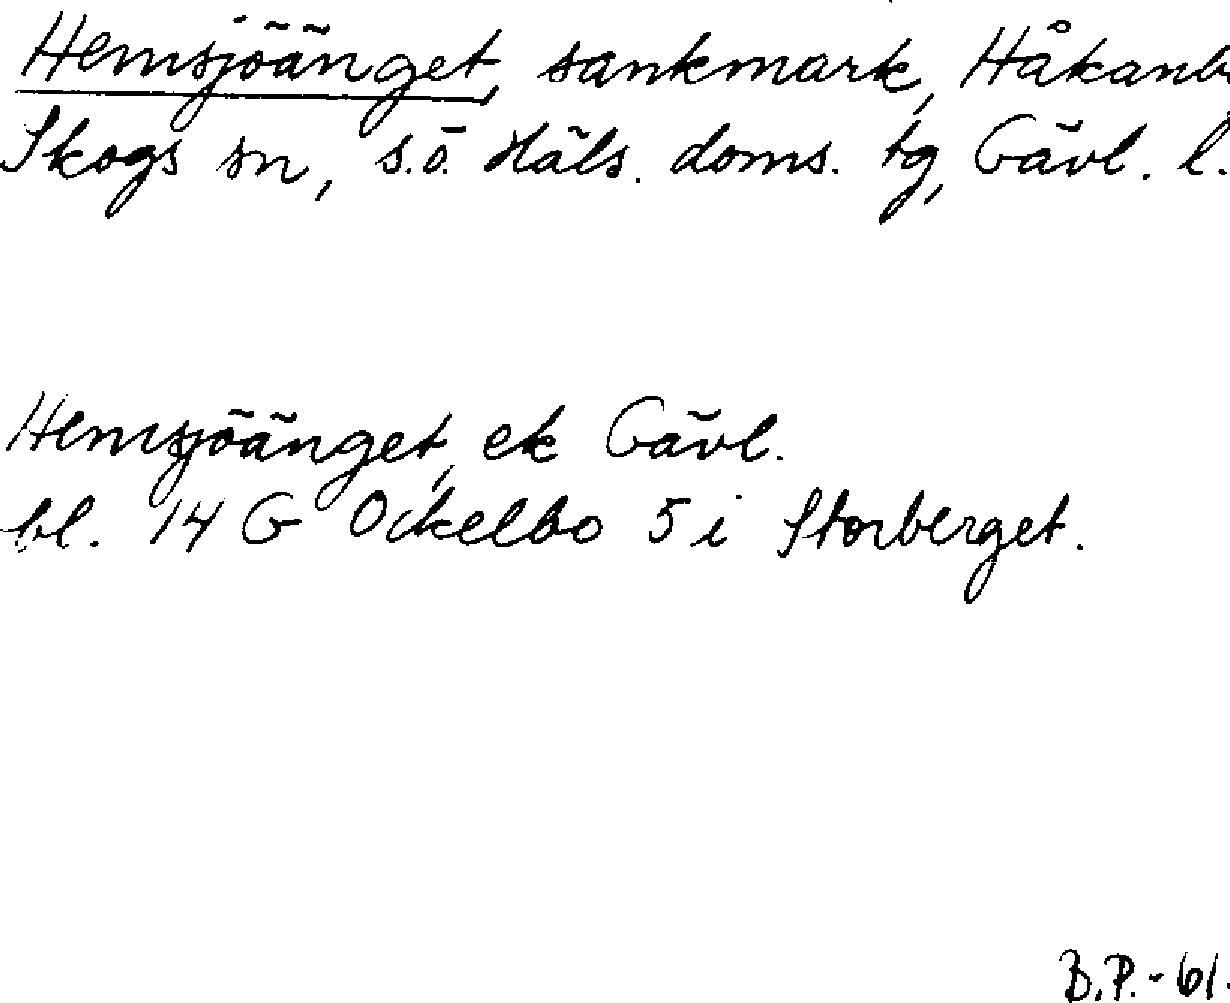 Hemsjöänget, sankmark, Håkanb
Skogs sn, s.ö. Häls. doms. tg, Gävl. l.
Hemsjöänget, ek Gävl.
bl. 14 G Ockelbo 5 i Storberget.
B.P. - 61.